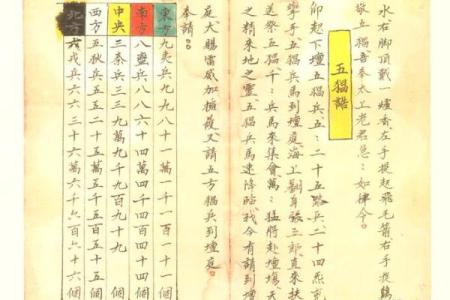 水右腳頂戴一爐香左手提起飛毛箭右手提
敬五猖吾奉太上老君急:如律令
五猖誥
仰起下壇五猖兵五:二十五路兵二十四炁
手五猖兵馬到壇庭海上劉身張三郎直來扶
送祭五猖千:兵馬來集會萬:猛將赴壇塲天
之精來地之靈五猖兵馬速降臨我今有請到壇
庭大賜雷威加擁護又請五方猖兵到壇庭
奉請
東方九夷兵九九八十一萬一千一百一十一個
南方八蠻兵八八六十四萬四千四百四十四個
中央三秦兵三三九萬九千九百九十九
西方五狄兵五五二十五萬五千五百五十五個
北方六戎兵六六三十六萬六千六百六十六個